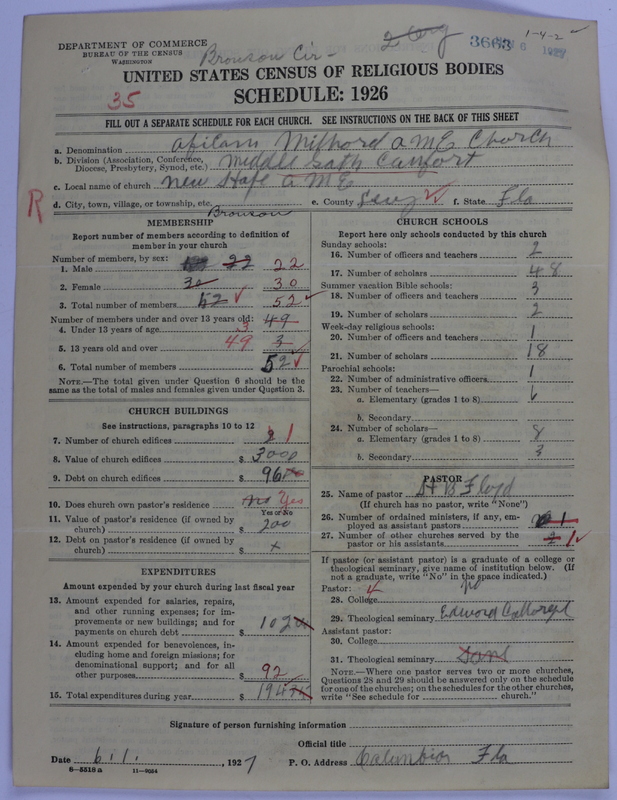 DEPARTMENT OF COMMERCE
BUREAU OF THE CENSUS
WASHINGTON
Bronson Cir
3663
1-4-2
UNITED STATES CENSUS OF RELIGIOUS BODIES
35
SCHEDULE: 1926
FILL OUT A SEPARATE SCHEDULE FOR EACH CHURCH. SEE INSTRUCTIONS ON THE BACK OF THIS SHEET
a. Denomination African Methord A M E Church
b. Division (Association, Conference, Diocese, Presbytery, Synod, etc.) Middle
c. Local name of church New Hope A M E
R
d. City, town, village, or township, etc. Bronson e. County Levy f. State Fla
MEMBERSHIP
Report number of members according to definition of
member in your church
Number of members, by sex:
1. Male 22 22
2. Female 30 30
3. Total number of members 52 52
Number of members under and over 13 years old: 49
4. Under 13 years of age 3
5. 13 years old and over 49 3
6. Total number of members 52
NOTE.—The total given under Question 6 should be
same as the total of males and females given under Question 3.
CHURCH BUILDINGS
See instructions, paragraphs 10 to 12
7. Number of church edifices 1
8. Value of church edifices $ 3000
9. Debt on church edifices $ 96
10. Does church own pastor's residence no Yes
Yes or No
11. Value of pastor's residence (if owned by
church) $ 200
12. Debt on pastor's residence (if owned by
church) $ x
EXPENDITURES
Amount expended by your church during last fiscal year
13. Amount expended for salaries, repairs,
and other running expenses; for im-
provements or new buildings; and for
payments on church debt $ 102
14. Amount expended for benevolences, in-
cluding home and foreign missions; for
denominational support; and for all
other purposes $ 92
15. Total expenditures during year $ 194
CHURCH SCHOOLS
Report here only schools conducted by this church
Sunday schools:
16. Number of officers and teachers 2
17. Number of scholars 48
Summer vacation Bible schools:
18. Number of officers and teachers 3
19. Number of scholars 2
Week-day religious schools:
20. Number of officers and teachers 1
21. Number of scholars 18
Parochial schools:
22. Number of administrative officers 1
23. Number of teachers—
a. Elementary (grades 1 to 8)
b. Secondary
24. Number of scholars—
a. Elementary (grades 1 to 8) 8
b. Secondary 3
PASTOR
25. Name of pastor H B Floyd
(If church has no pastor, write "None")
26. Number of ordained ministers, if any, em-
ployed as assistant pastors 1
27. Number of other churches served by the
pastor or his assistants 1
If pastor (or assistant pastor) is a graduate of a college or
theological seminary, give name of institution below. (If
not a graduate, write "No" in the space indicated.)
Pastor: no
28. College
29. Theological seminary Edward
Assistant pastor:
30. College
31. Theological seminary
NOTE.—Where one pastor serves two or more churches,
Questions 28 and 29 should be answered only on the schedule
for one of the churches; on the schedules for the other churches,
write "See schedule for church."
Signature of person furnishing information
Official title
Date 6. 1. , 1927 P. O. Address Columbia Fla
8—5518 a 11—9654